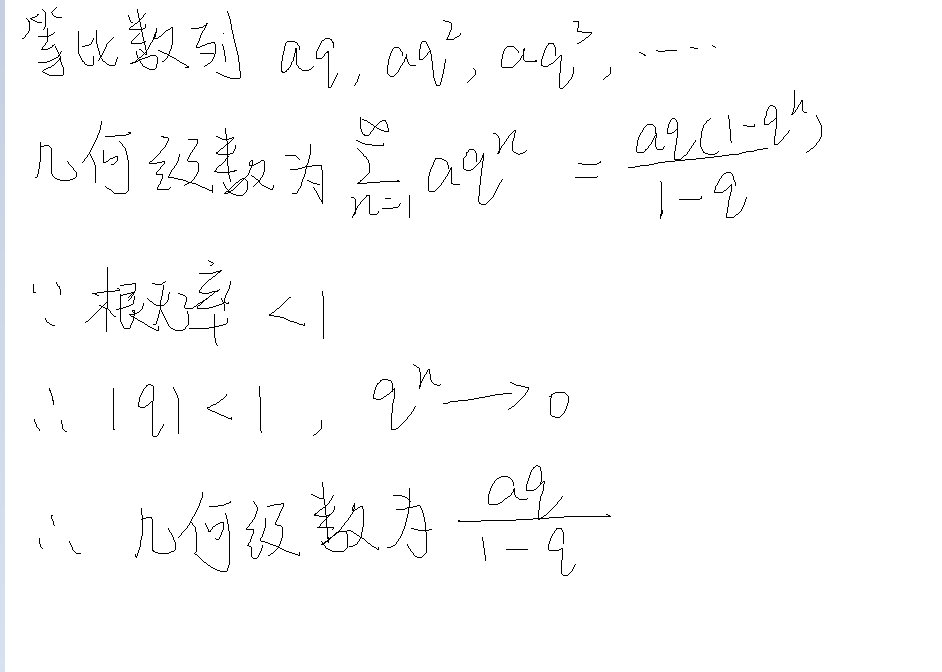 等比数列 aq, aq², aq³, ……
几何级数为 ∑_{n=1}^{∞} aqⁿ = aq(1-qⁿ)/(1-q)
∵ 概率 <1
∴ |q|<1, qⁿ → 0
∴ 几何级数为 aq/(1-q)